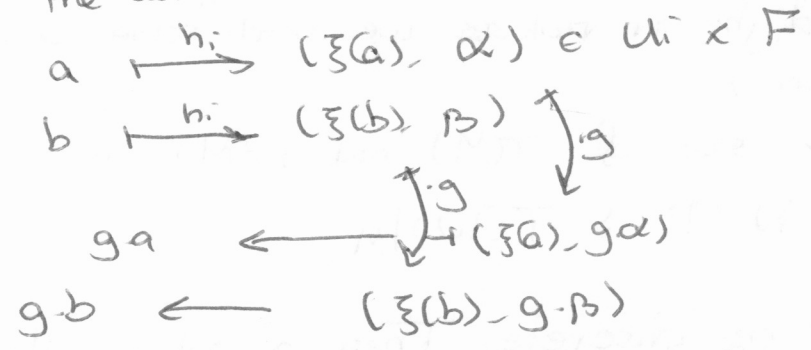 a ↦ hᵢ (ξ(a), α) ∈ Uᵢ × F
b ↦ hᵢ (ξ(b), β)
·g
·g
g·a ← (ξ(a), gα)
g·b ← (ξ(b), g·β)